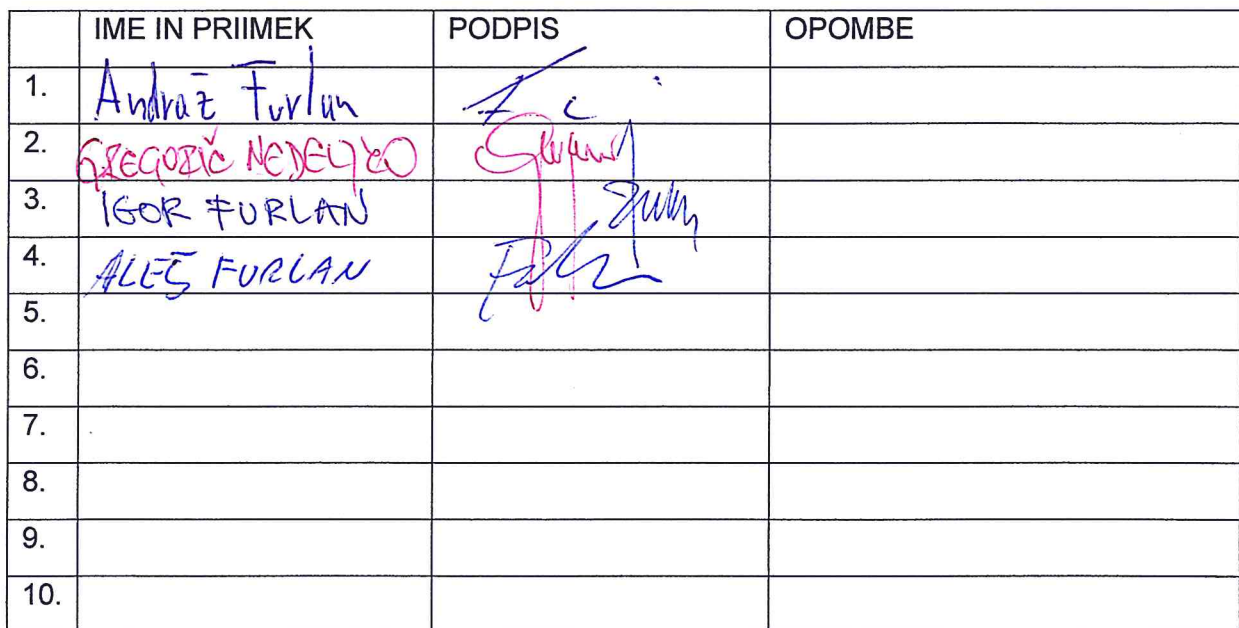 IME IN PRIIMEK PODPIS OPOMBE
1. Andraž Furlan
2. GREGORIČ NEDELJKO
3. IGOR FURLAN
4. ALEŠ FURLAN
5.
6.
7.
8.
9.
10.